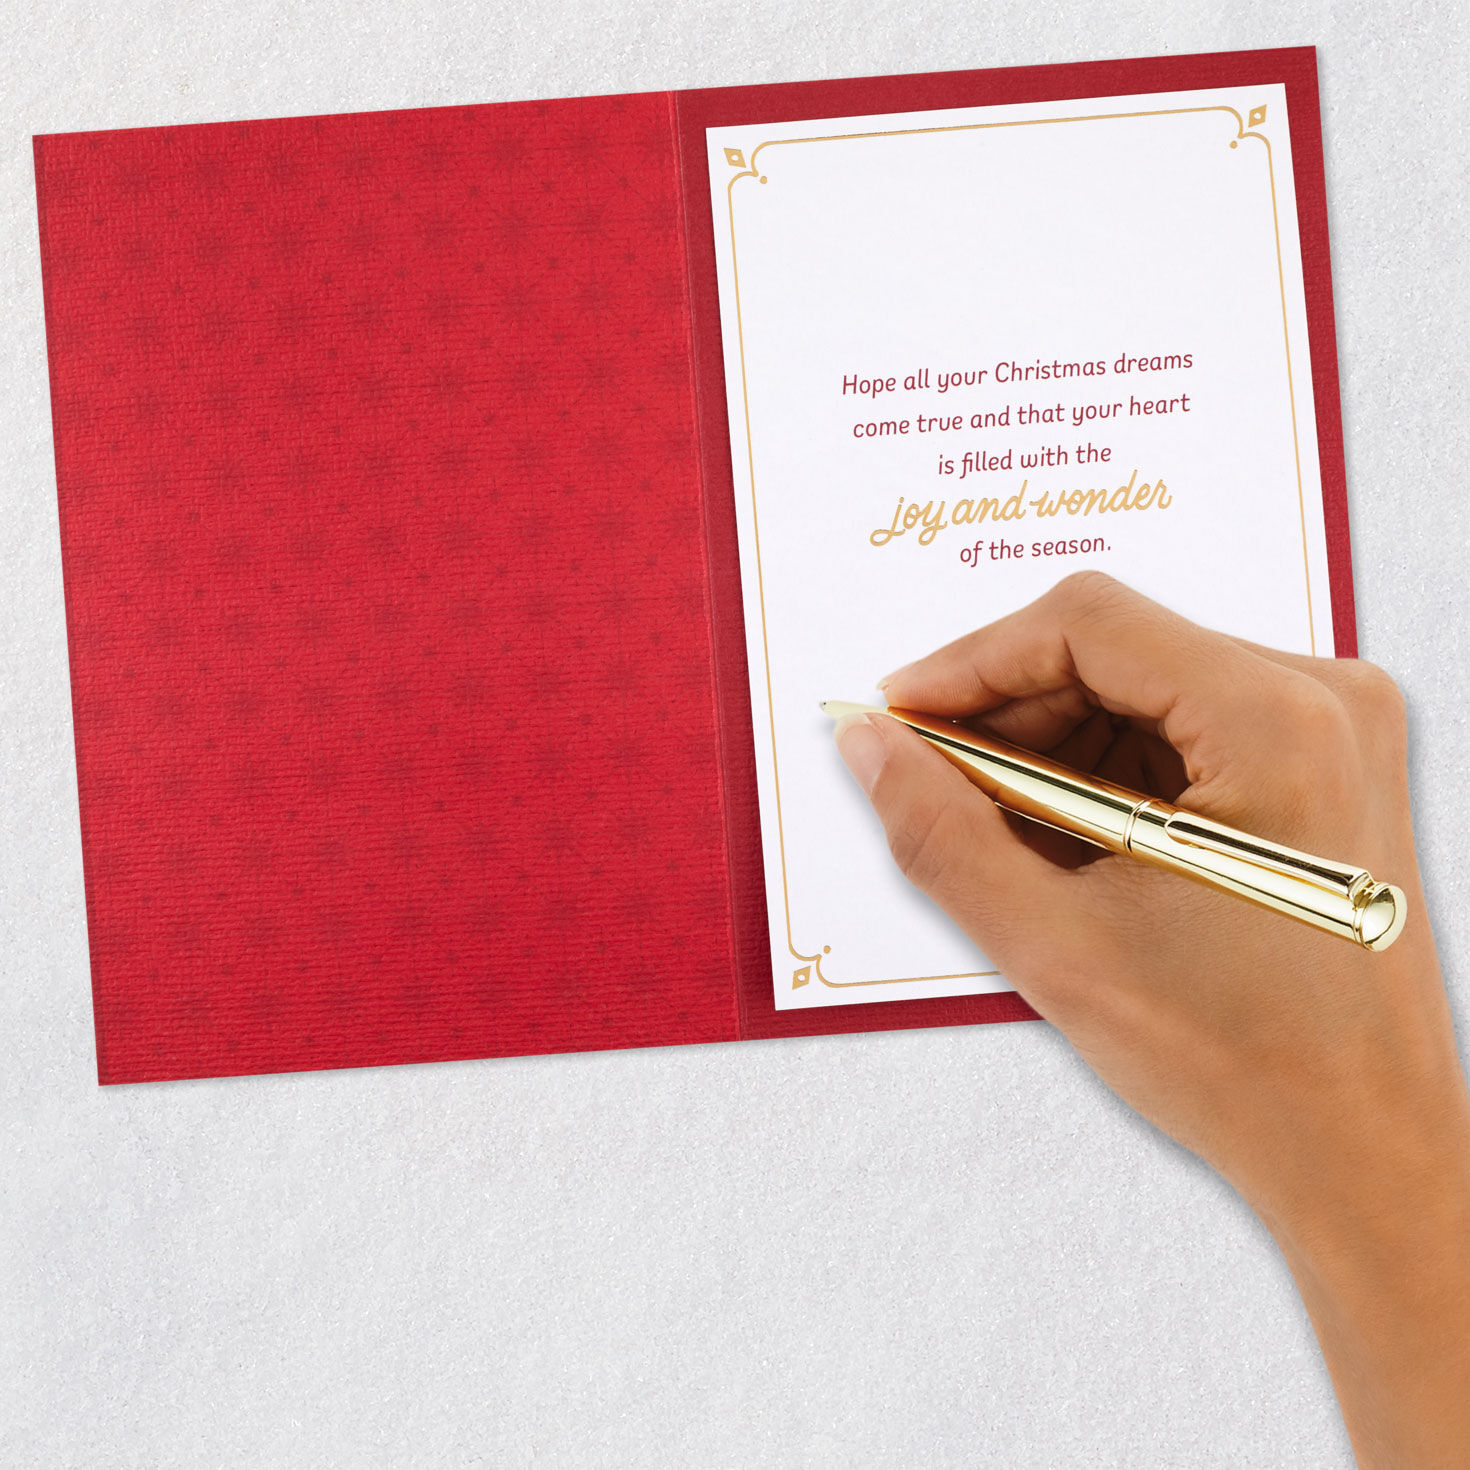 Hope all your Christmas dreams
come true and that your heart
is filled with the
joy and wonder
of the season.